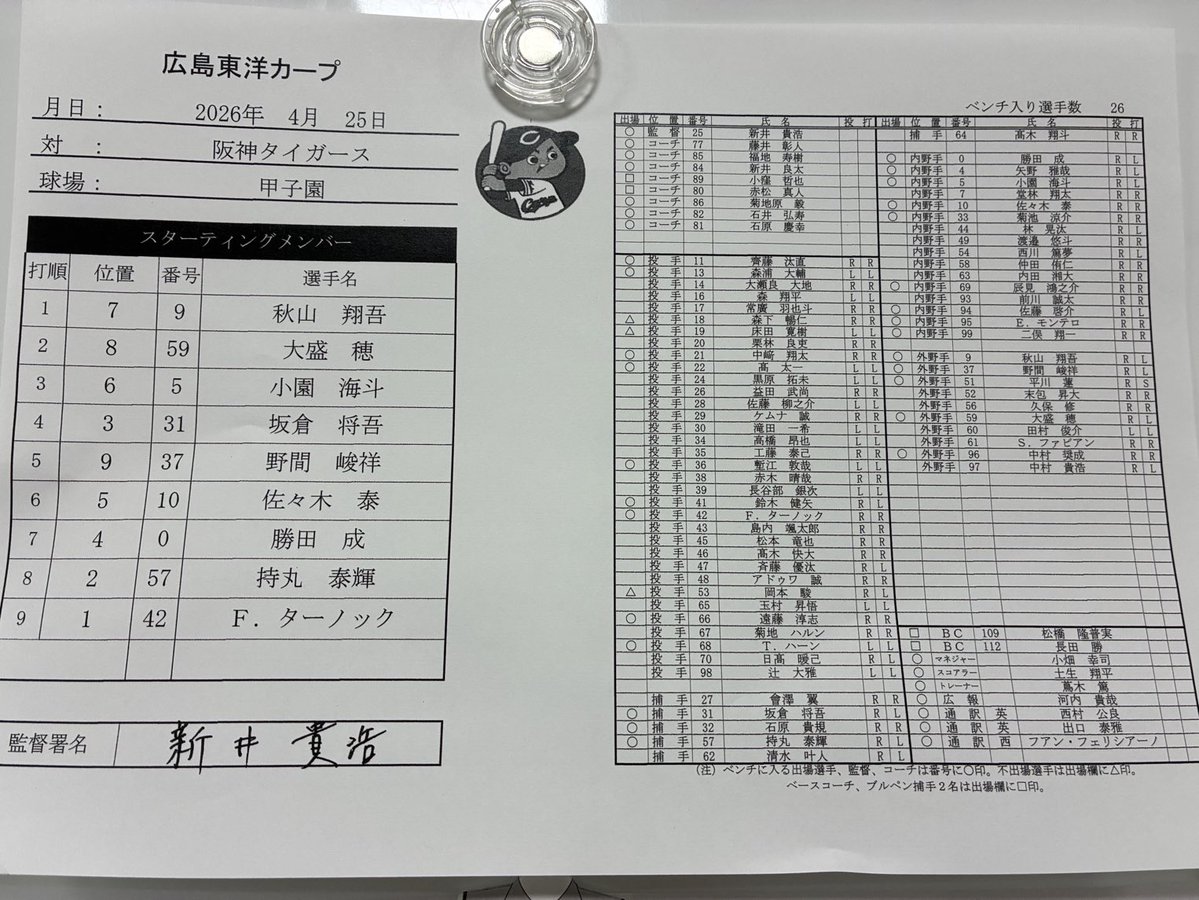 広島東洋カープ
月日： 2026年 4月 25日
対 ： 阪神タイガース
球場： 甲子園
スターティングメンバー
打順 位置 番号 選手名
1 7 9 秋山 翔吾
2 8 59 大盛 穂
3 6 5 小園 海斗
4 3 31 坂倉 将吾
5 9 37 野間 峻祥
6 5 10 佐々木 泰
7 4 0 勝田 成
8 2 57 持丸 泰輝
9 1 42 F．ターノック
監督署名 新井 貴浩
Carp
ベンチ入り選手数 26
出場 位置 番号 氏名 投 打
○ 監督 25 新井 貴浩
○ コーチ 77 藤井 彰人
○ コーチ 85 福地 寿樹
○ コーチ 84 新井 良太
□ コーチ 89 小窪 哲也
□ コーチ 80 赤松 真人
○ コーチ 86 菊地原 毅
○ コーチ 82 石井 弘寿
○ コーチ 81 石原 慶幸
○ 投手 11 齊藤 汰直 R R
○ 投手 13 森浦 大輔 L L
投手 14 大瀬良 大地 R R
投手 16 森 翔平 L L
投手 17 常廣 羽也斗 R R
△ 投手 18 森下 暢仁 R R
△ 投手 19 床田 寛樹 L L
投手 20 栗林 良吏 R R
○ 投手 21 中﨑 翔太 R R
○ 投手 22 髙 太一 L L
投手 24 黒原 拓未 L L
投手 26 益田 武尚 R R
投手 28 佐藤 柳之介 L L
投手 29 ケムナ 誠 R R
投手 30 滝田 一希 L L
投手 34 高橋 昂也 L L
投手 35 工藤 泰己 R R
○ 投手 36 塹江 敦哉 L L
投手 38 赤木 晴哉 R R
投手 39 長谷部 銀次 L L
○ 投手 41 鈴木 健矢 R L
○ 投手 42 F．ターノック R R
投手 43 島内 颯太郎 R R
投手 45 松本 竜也 R R
投手 46 髙木 快大 R R
投手 47 斉藤 優汰 R L
投手 48 アドゥワ 誠 R R
△ 投手 53 岡本 駿 R L
投手 65 玉村 昇悟 L L
○ 投手 66 遠藤 淳志 R R
投手 67 菊地 ハルン R R
○ 投手 68 T．ハーン L L
投手 70 日髙 暖己 R L
投手 98 辻 大雅 L L
捕手 27 會澤 翼 R R
○ 捕手 31 坂倉 将吾 R L
○ 捕手 32 石原 貴規 R R
○ 捕手 57 持丸 泰輝 R L
捕手 62 清水 叶人 R L
出場 位置 番号 氏名 投 打
捕手 64 髙木 翔斗 R R
○ 内野手 0 勝田 成 R L
○ 内野手 4 矢野 雅哉 R L
○ 内野手 5 小園 海斗 R L
内野手 7 堂林 翔太 R R
○ 内野手 10 佐々木 泰 R R
○ 内野手 33 菊池 涼介 R R
内野手 44 林 晃汰 R L
内野手 49 渡邉 悠斗 R R
内野手 54 西川 篤夢 R L
内野手 58 仲田 侑仁 R R
内野手 63 内田 湘大 R R
○ 内野手 69 辰見 鴻之介 R R
内野手 93 前川 誠太 R R
○ 内野手 94 佐藤 啓介 R L
○ 内野手 95 E．モンテロ R R
○ 内野手 99 二俣 翔一 R R
○ 外野手 9 秋山 翔吾 R L
○ 外野手 37 野間 峻祥 R L
○ 外野手 51 平川 蓮 R S
外野手 52 末包 昇大 R R
外野手 56 久保 修 R R
○ 外野手 59 大盛 穂 R L
外野手 60 田村 俊介 L L
外野手 61 S．ファビアン R R
○ 外野手 96 中村 奨成 R R
外野手 97 中村 貴浩 R L
□ BC 109 松橋 隆晋実
□ BC 112 長田 勝
○ マネジャー 小畑 幸司
○ スコアラー 土生 翔平
○ トレーナー 蔦木 篤
○ 広報 河内 貴哉
○ 通訳 英 西村 公良
○ 通訳 英 出口 泰雅
○ 通訳 西 フアン・フェリシアーノ
（注）ベンチに入る出場選手、監督、コーチは番号に○印。不出場選手は出場欄に△印。
ベースコーチ、ブルペン捕手２名は出場欄に□印。